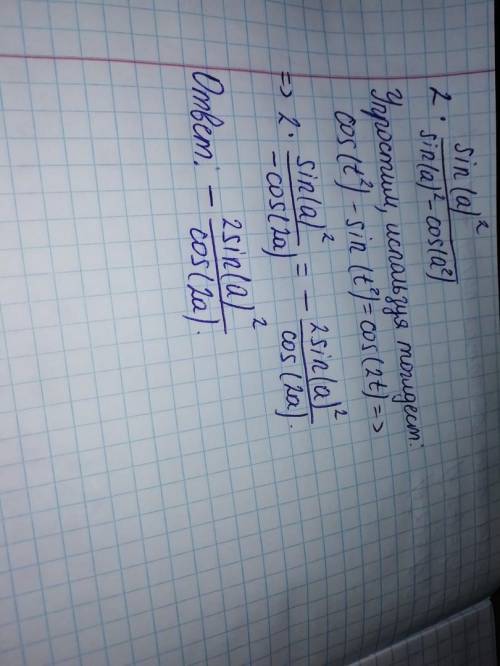 2 · sin(a)² / (sin(a)² - cos(a²))
Упростим, используя тождест.
cos(t²) - sin(t²) = cos(2t) =>
=> 2 · sin(a)² / (-cos(2a)) = - 2sin(a)² / cos(2a).
Ответ: - 2sin(a)² / cos(2a).